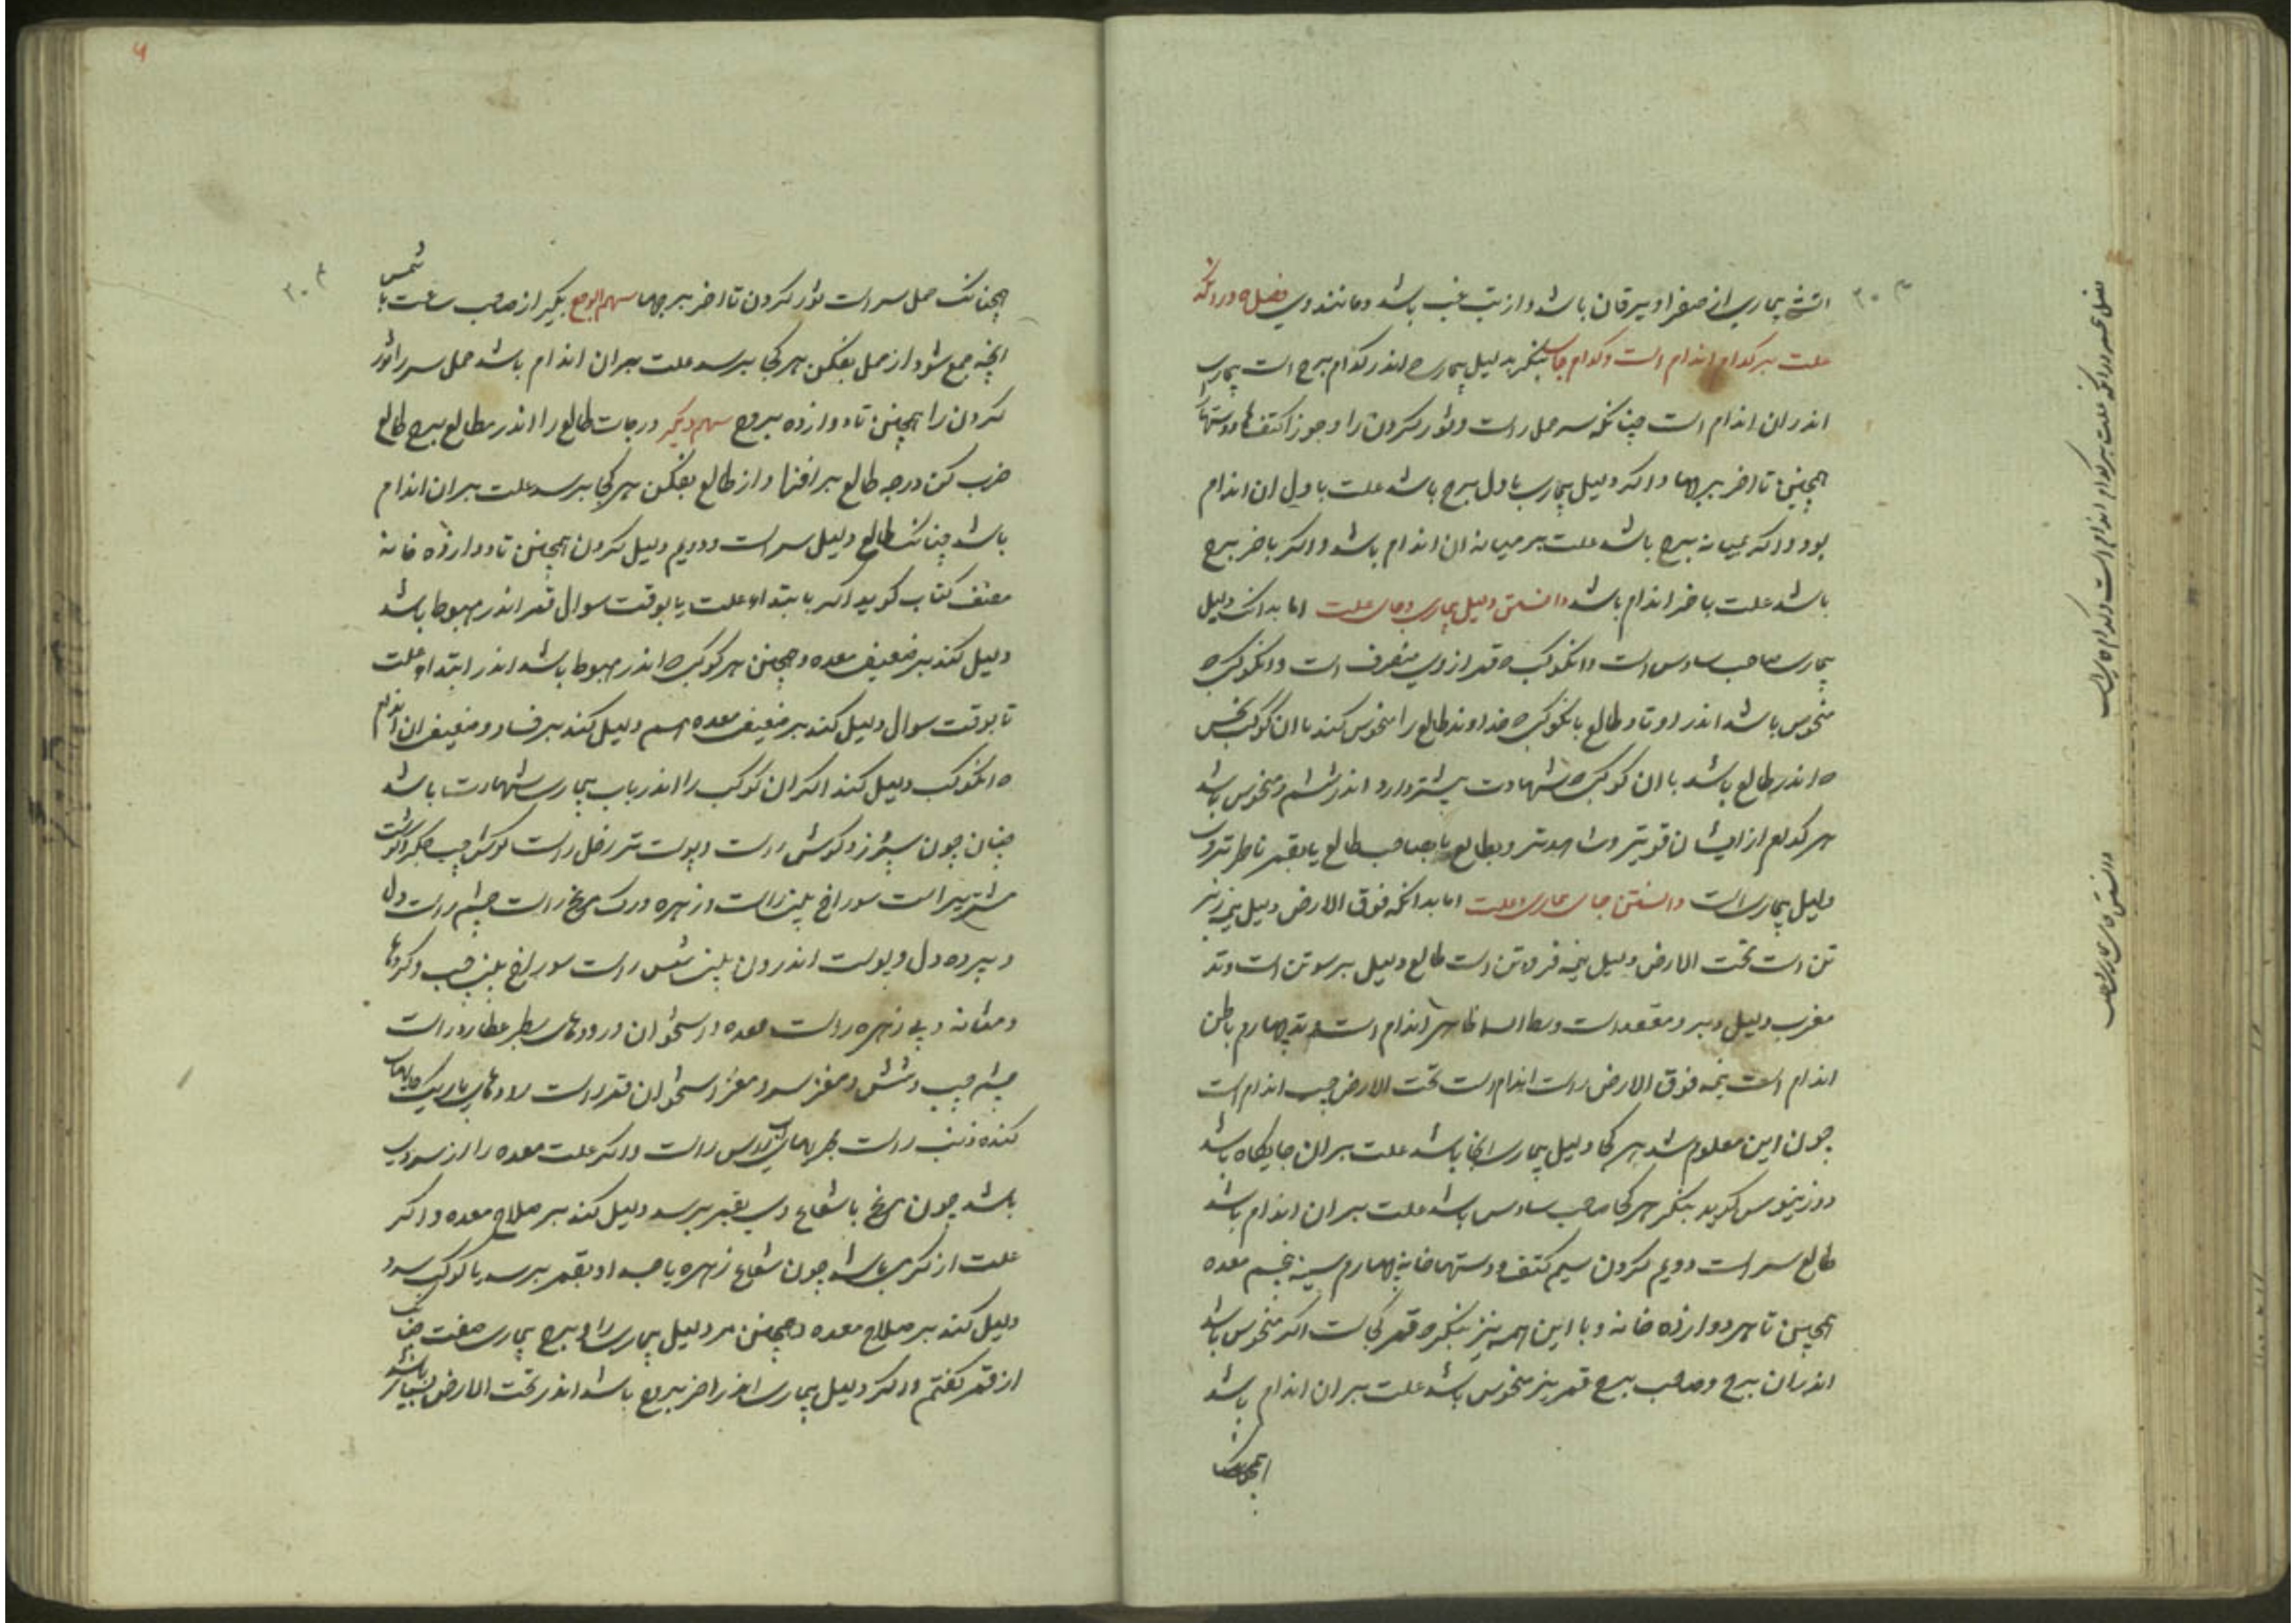 آتشی بیماری از صفرا و یرقان باشد و از تب غب باشد و مانند وی فصل ه در آنکه
علت بر کدام اندام است و کدام جای بنگر بدلیل بیماری ه اندر کدام برج است بیماری
اندر ان اندام است چنانکه سر حمل راست و ثور کردن را و جوزا کتفها و دستها
همچنین تا اخر برجها و اکر دلیل بیماری باول برج باشد علت باول ان اندام
بود و اکر بمیانه برج باشد علت بر میانه ان اندام باشد و اکر باخر برج
باشد علت باخر اندام باشد دانستن دلیل بیماری و جای علت اما بدانک دلیل
بیماری صاحب سادس است و انکوکب ه قمر از وی منصرف است و انکوکب ه
منحوس باشد اندر اوتاد طالع یا انکوکب ه خداوند طالع را منحوس کند یا ان کوکب نحس
ه اندر طالع باشد یا ان کوکب ه شهادت بیشتر دارد اندر ششم و منحوس باشد
هر کدام از ایشان قویتر و شاهدتر و بطالع یا بصاحب طالع یا بقمر ناظرتر وی
دلیل بیماری است دانستن جای بیماری و علت اما بدانکه فوق الارض دلیل نیمه زبر
تن است تحت الارض دلیل نیمه فرود تن است طالع دلیل بر سو تن است وتد
مغرب دلیل دبر و مقعد است وسط السما ظاهر اندام است وتد چهارم باطن
اندام است نیمه فوق الارض راست اندام است تحت الارض چپ اندام است
چون این معلوم شد هر کجا دلیل بیماری انجا باشد علت بر ان جایکاه باشد
دورنیوس کوید بنکر هر کجا صاحب سادس باشد علت بر ان اندام باشد
طالع سر است دویم کردن سیم کتف و دستها خانه چهارم سینه پنجم معده
همچنین تا هر دوازده خانه و با این همه نیز بنکر ه قمر کجاست اکر منحوس باشد
اندر ان برج و صاحب برج قمر نیز منحوس باشد علت بر ان اندام باشد
همچنانک
فصل پنجم در آنکه علت بر کدام اندام است و کدام جای است
دانستن جای بیماری و علت
همچنانک حمل سر است ثور کردن تا اخر برجها سهم الوجع بکیر از صاحب ساعت تا شمس
انچه جمع شود از حمل بفکن هر کجا برسد علت بر ان اندام باشد حمل سر را ثور
کردن را همچنین تا دوازده بروج سهم دیگر درجات طالع را اندر مطالع برج طالع
ضرب کن درجه طالع بر افزا و از طالع بفکن هر کجا برسد علت بر ان اندام
باشد چنانک طالع دلیل سر است و دویم دلیل کردن همچنین تا دوازده خانه
مصنف کتاب کوید اکر بابتداء علت یا بوقت سوال قمر اندر هبوط باشد
دلیل کند بر ضعیف معده و همچنین هر کوکب ه اندر هبوط باشد اندر ابتداء علت
تا بوقت سوال دلیل کند بر ضعیف معده هم دلیل کند بر فساد و ضعیف ان اندام
ه انکوکب دلیل کند اکر ان کوکب را اندر باب بیماری شهادت باشد
چنان چون سپرز و کوش راست و پوست تن زحل راست کوش چپ جکر
مشتری راست سوراخ بینی راست و زهره و رک مریخ راست چشم راست و دل
و پرده دل و پوست اندرون بینی شمس راست سوراخ بینی چپ و کردها
و مثانه و پی زهره راست معده و استخوان و رودهای سطبر عطارد راست
چشم چپ و شش و مغز سر و مغز استخوان قمر راست رودهای باریک
کنده ذنب راست راس راست و اکر علت معده را از سردی
باشد چون مریخ یا شعاع وی بقمر برسد دلیل کند بر صلاح معده و اکر
علت از کرمی باشد چون شعاع زهره یا جسد او بقمر برسد یا کوکب سرد
دلیل کند بر صلاح معده و همچنین مر دلیل بیماری را و برج بیماری صفت چنانک
از قمر کفتم و اکر دلیل بیماری اندر اخر بروج باشد اندر تحت الارض بسیار باشد